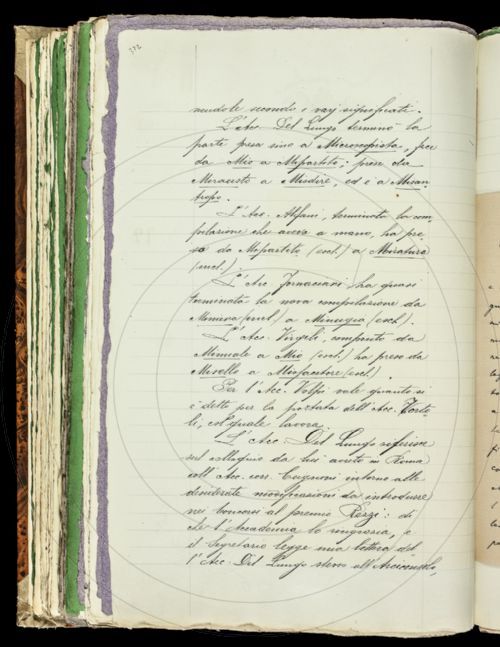 332
nendole secondo i varj significati.
L'Acc. Del Lungo terminò la
parte presa sino a Microscopista, fece
da Mio a Mipartito; prese da
Miracisto a Misdire, ed è a Misan
tropo.
L'Acc. Alfani, terminata la com
pilazione che aveva a mano, ha pre
so da Mipartito (escl.) a Miratura
(incl.)
L'Acc. Fornaciari ha quasi
terminata la nova compilazione da
Mimosa (incl.) a Minugia (escl.).
L'Acc. Virgilj, compiuto da
Minuale a Mio (escl.) ha preso da
Misello a Misfacitore (escl.).
Per l'Acc. Volpi vale quanto si
è detto per la portata dell'Acc. Torto
li, col quale lavora.
L'Acc. Del Lungo riferisce
sul colloquio da lui avuto in Roma
coll'Acc. corr. Cugnoni intorno alle
desiderate modificazioni da introdurre
nei concorsi al premio Rezzi: di
che l'Accademia lo ringrazia, e
il Segretario legge una lettera del
l'Acc. Del Lungo stesso all'Arciconsolo,